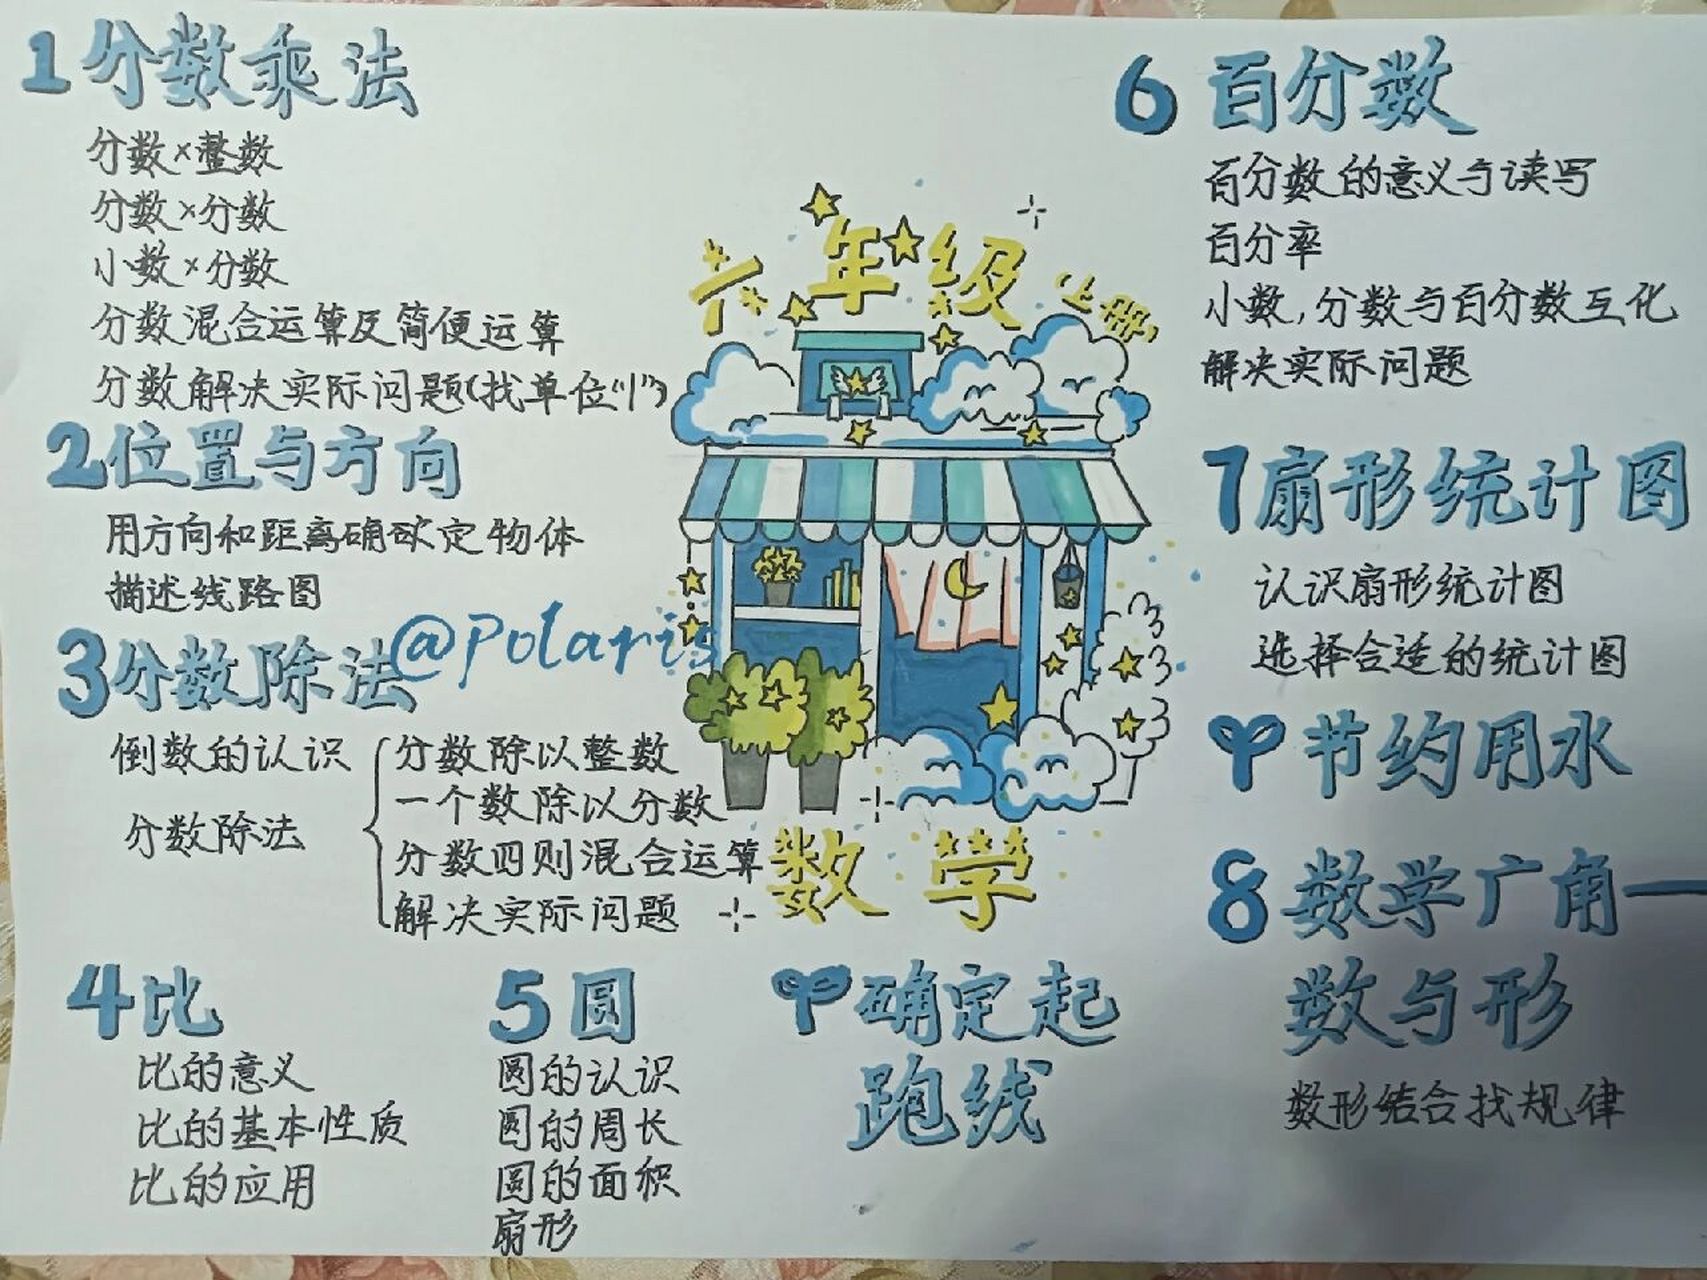 1 分数乘法
分数×整数
分数×分数
小数×分数
分数混合运算及简便运算
分数解决实际问题(找单位“1”)
2 位置与方向
用方向和距离确定物体
描述线路图
3 分数除法
@Polaris
倒数的认识
分数除法
分数除以整数
一个数除以分数
分数四则混合运算
解决实际问题
4 比
比的意义
比的基本性质
比的应用
5 圆
圆的认识
圆的周长
圆的面积
扇形
六年级(上册)
数学
确定起
跑线
6 百分数
百分数的意义与读写
百分率
小数,分数与百分数互化
解决实际问题
7 扇形统计图
认识扇形统计图
选择合适的统计图
节约用水
8 数学广角一
数与形
数形结合找规律